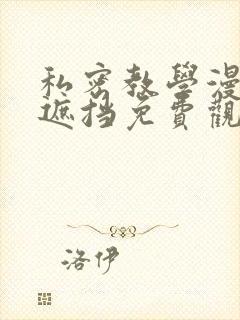 私密教學漫
遮挡免費觀
洛伊